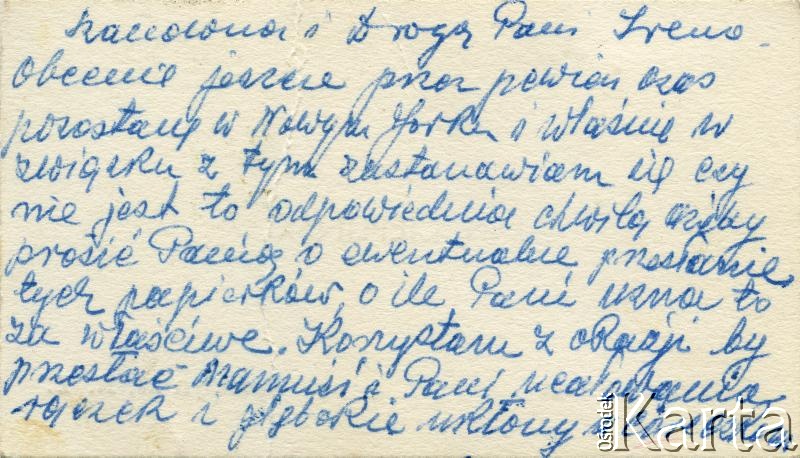 Szanowna i Droga Pani Ireno.
Obecnie jeszcze przez pewien czas
pozostanę w Nowym Yorku i właśnie w
związku z tym zastanawiam się czy
nie jest to odpowiednia chwila ażeby
prosić Panią o ewentualne przesłanie
tych papierków, o ile Pani uzna to
za właściwe. Korzystam z okazji by
przesłać Mamusi i Pani ucałowania
rączek i głębokie ukłony
ośrodek
Karta